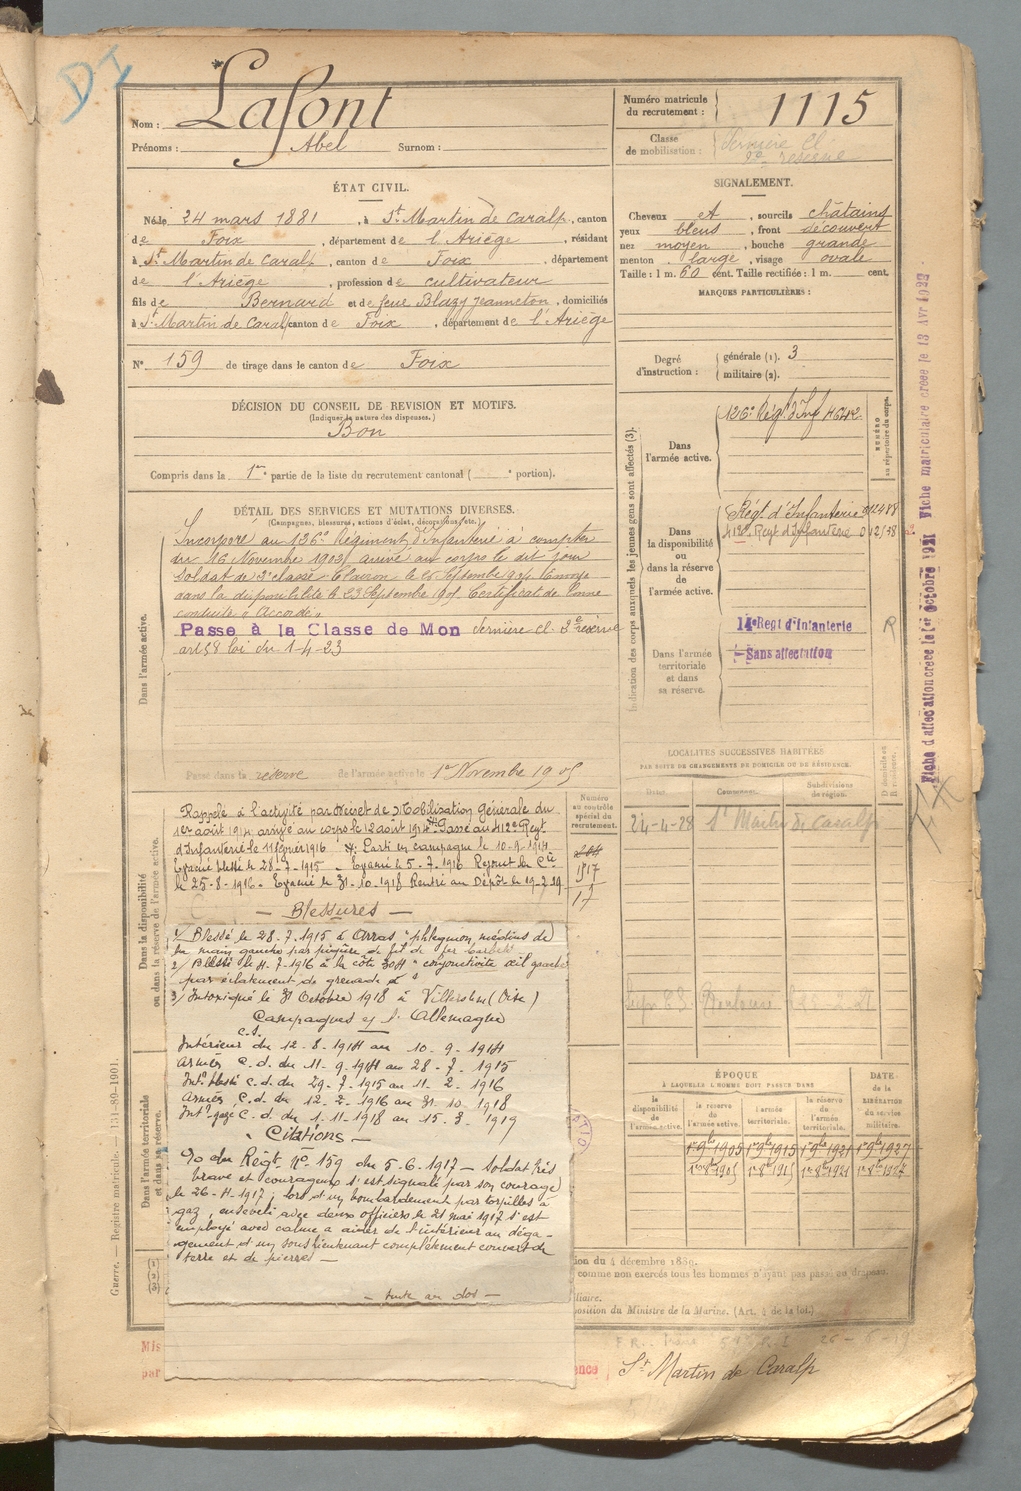 DI
Nom : Lafont
Prénoms : Abel Surnom :
Numéro matricule du recrutement : 1115
Classe de mobilisation : dernière Cl 2e réserve
ÉTAT CIVIL.
Né le 24 mars 1881, à St Martin de Caralp, canton
de Foix, département de l'Ariège, résidant
à St Martin de Caralp, canton de Foix, département
de l'Ariège, profession de cultivateur
fils de Bernard et de feue Blazy Jeanneton, domiciliés
à St Martin de Caralp canton de Foix, département de l'Ariège
N° 159 de tirage dans le canton de Foix
SIGNALEMENT.
Cheveux et, sourcils châtains
yeux bleus, front découvert
nez moyen, bouche grande
menton large, visage ovale
Taille : 1 m. 60 cent. Taille rectifiée : 1 m. cent.
MARQUES PARTICULIÈRES :
Degré d'instruction : générale (1). 3
militaire (2).
DÉCISION DU CONSEIL DE REVISION ET MOTIFS.
(Indiquer la nature des dispenses.)
Bon
Compris dans la 1re partie de la liste du recrutement cantonal ( e portion).
DÉTAIL DES SERVICES ET MUTATIONS DIVERSES.
(Campagnes, blessures, actions d'éclat, décorations, etc.)
Dans l'armée active.
Incorporé au 126e Régiment d'Infanterie à compter
du 16 Novembre 1902, arrivé au corps le dit jour
Soldat de 2e classe. Clairon le 25 Septembre 904. Envoyé
dans la disponibilité le 23 Septembre 1905. Certificat de bonne
conduite "Accordé".
Passé à la Classe de Mon dernière cl. 2e réserve
art 58 loi du 1-4-23
Passé dans la réserve de l'armée active le 1er Novembre 1905
Indication des corps auxquels les jeunes gens sont affectés (3).
NUMÉRO au répertoire du corps.
Dans l'armée active.
126e Régt d'Inf 4642
Dans la disponibilité ou dans la réserve de l'armée active.
Régt d'Infanterie 012488
412e Regt d'Infanterie 012/48
Dans l'armée territoriale et dans sa réserve.
14e Regt d'Infanterie R
Sans affectation
LOCALITÉS SUCCESSIVES HABITÉES
PAR SUITE DE CHANGEMENTS DE DOMICILE OU DE RÉSIDENCE.
Dates. Communes. Subdivisions de région. D. domicile ou R. résidence.
24-4-28 St Martin de Caralp
Dans la disponibilité ou dans la réserve de l'armée active.
Numéro au contrôle spécial du recrutement.
1517
17
Rappelé à l'activité par Décret de Mobilisation Générale du
1er août 1914, arrivé au corps le 12 août 1914. Passé au 412e Regt
d'Infanterie le 11 février 1916 Parti en campagne le 10-9-1914
Evacué blessé le 28-7-1915 - Evacué le 5-7-1916 Rejoint la Cie
le 25-8-1916 - Evacué le 31-10-1918 Rentré au Dépôt le 19-2-19
— Blessures —
1/ Blessé le 28.7.1915 à Arras "phlegmon, médius de
la main gauche par piqûre de fil de fer barbelé
2/ Blessé le 4.7.1916 à la côte 304 "conjonctivite œil gauche
par éclatement de grenade"
3/ Intoxiqué le 31 Octobre 1918 à (Oise)
Campagnes c/ l'Allemagne
C.S.
Intérieur du 12-8-1914 au 10-9-1914
Armées C.d. du 11-9-1914 au 28-7-1915
Intr blessé C.d. du 29-7-1915 au 11-2-1916
Armées C.d. du 12-2-1916 au 31-10-1918
Intr gazé C.d. du 1-11-1918 au 15-3-1919
Citations —
O. du Régt N° 159 du 5-6-1917 — Soldat très
brave et courageux s'est signalé par son courage
le 26-4-1917, lors d'un bombardement par torpilles à
gaz, enseveli avec deux officiers le 21 mai 1917 s'est
employé avec calme à aider de l'intérieur au déga-
gement d'un sous lieutenant complètement couvert de
terre et de pierres —
— suite au dos —
Dans l'armée territoriale et dans sa réserve.
ÉPOQUE
À LAQUELLE L'HOMME DOIT PASSER DANS
DATE de la LIBÉRATION du service militaire.
la disponibilité de l'armée active. la réserve de l'armée active. l'armée territoriale. la réserve de l'armée territoriale.
1er 9bre 1905 1er 9bre 1915 1er 9bre 1921 1er 9bre 1927
1er 8bre 1905 1er 8bre 1915 1er 8bre 1921 1er 8bre 1927
(1) (2) (3)
ion du 4 décembre 1889.
comme non exercés tous les hommes n'ayant pas passé au drapeau.
iliaire.
position du Ministre de la Marine. (Art. 4 de la loi.)
Mis
par
ence
St Martin de Caralp
Guerre. — Registre matricule. — 131-89-1901.
Fiche d'affectation créée le 1er octobre 1921 Fiche matriculaire créée le 13 Avr 1922